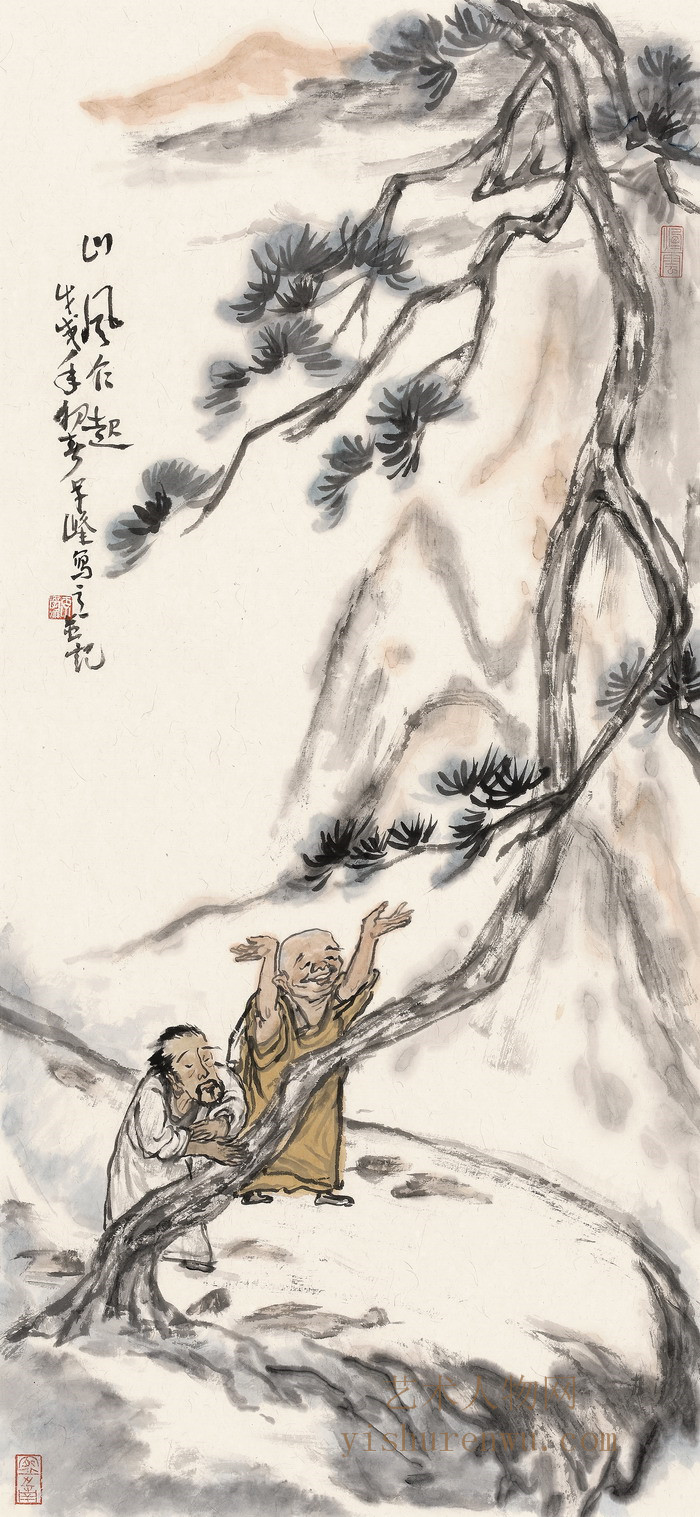 山风乍起
戊戌年初春峰写之并记
艺术人物网
yishurenwu.com